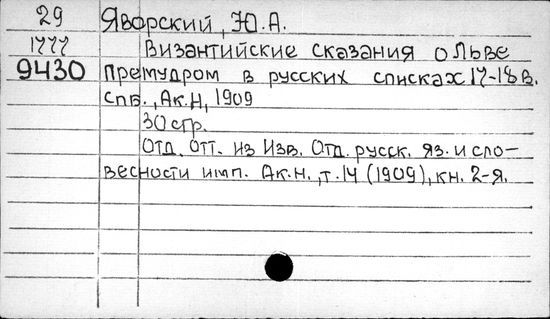 29 Яворский, Ю.А.
1777 Византийские сказания о Льве
9430 Премудром в русских списках 17-18 в.
Спб., Ак.Н, 1909
30 стр.
Отд. отт. из Изв. Отд. русск. яз. и сло-
весности имп. Ак.Н., т.14 (1909), кн. 2-я.